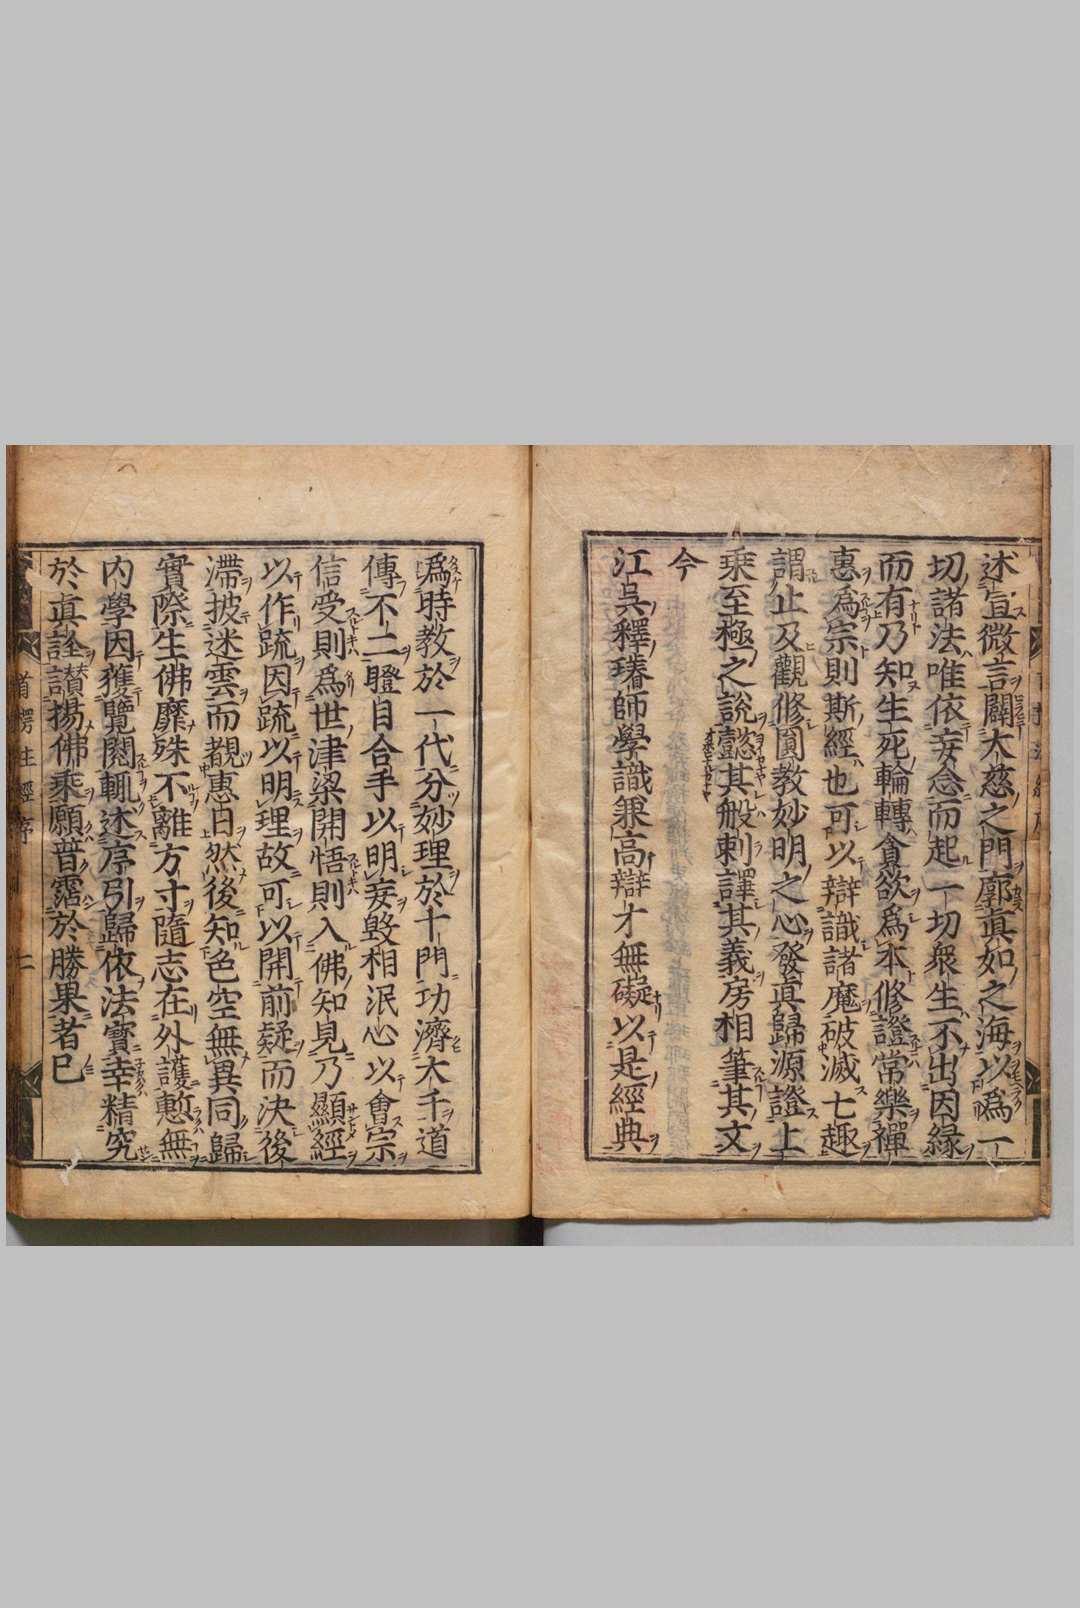 述宣微言闢大慈之門廓眞如之海以爲一
切諸法唯依妄念而起一切衆生不出因緣
而有乃知生死輪轉貪欲爲本修證常樂禪
惠爲宗則斯經也可以辯識諸魔破滅七趣
謂止及觀修圓教妙明之心發眞歸源證上
乗至極之說懿其般剌譯其義房相筆其文
今
江吳釋璿師學識兼高辯才無礙以是經典
爲時教於一代分妙理於十門功濟大千道
傳不二瞪目合手以明妄毀相泯心以會宗
信受則爲世津梁開悟則入佛知見乃顯經
以作疏因疏以明理故可以開前疑而決後
滯披迷雲而覩惠日然後知色空無異同歸
實際生佛靡殊不離方寸隨志在外護慙無
内學因獲覽閱輒述序引歸依法寶幸精究
於眞詮讃揚佛乗願普霑於勝果者已
首楞 經序 二